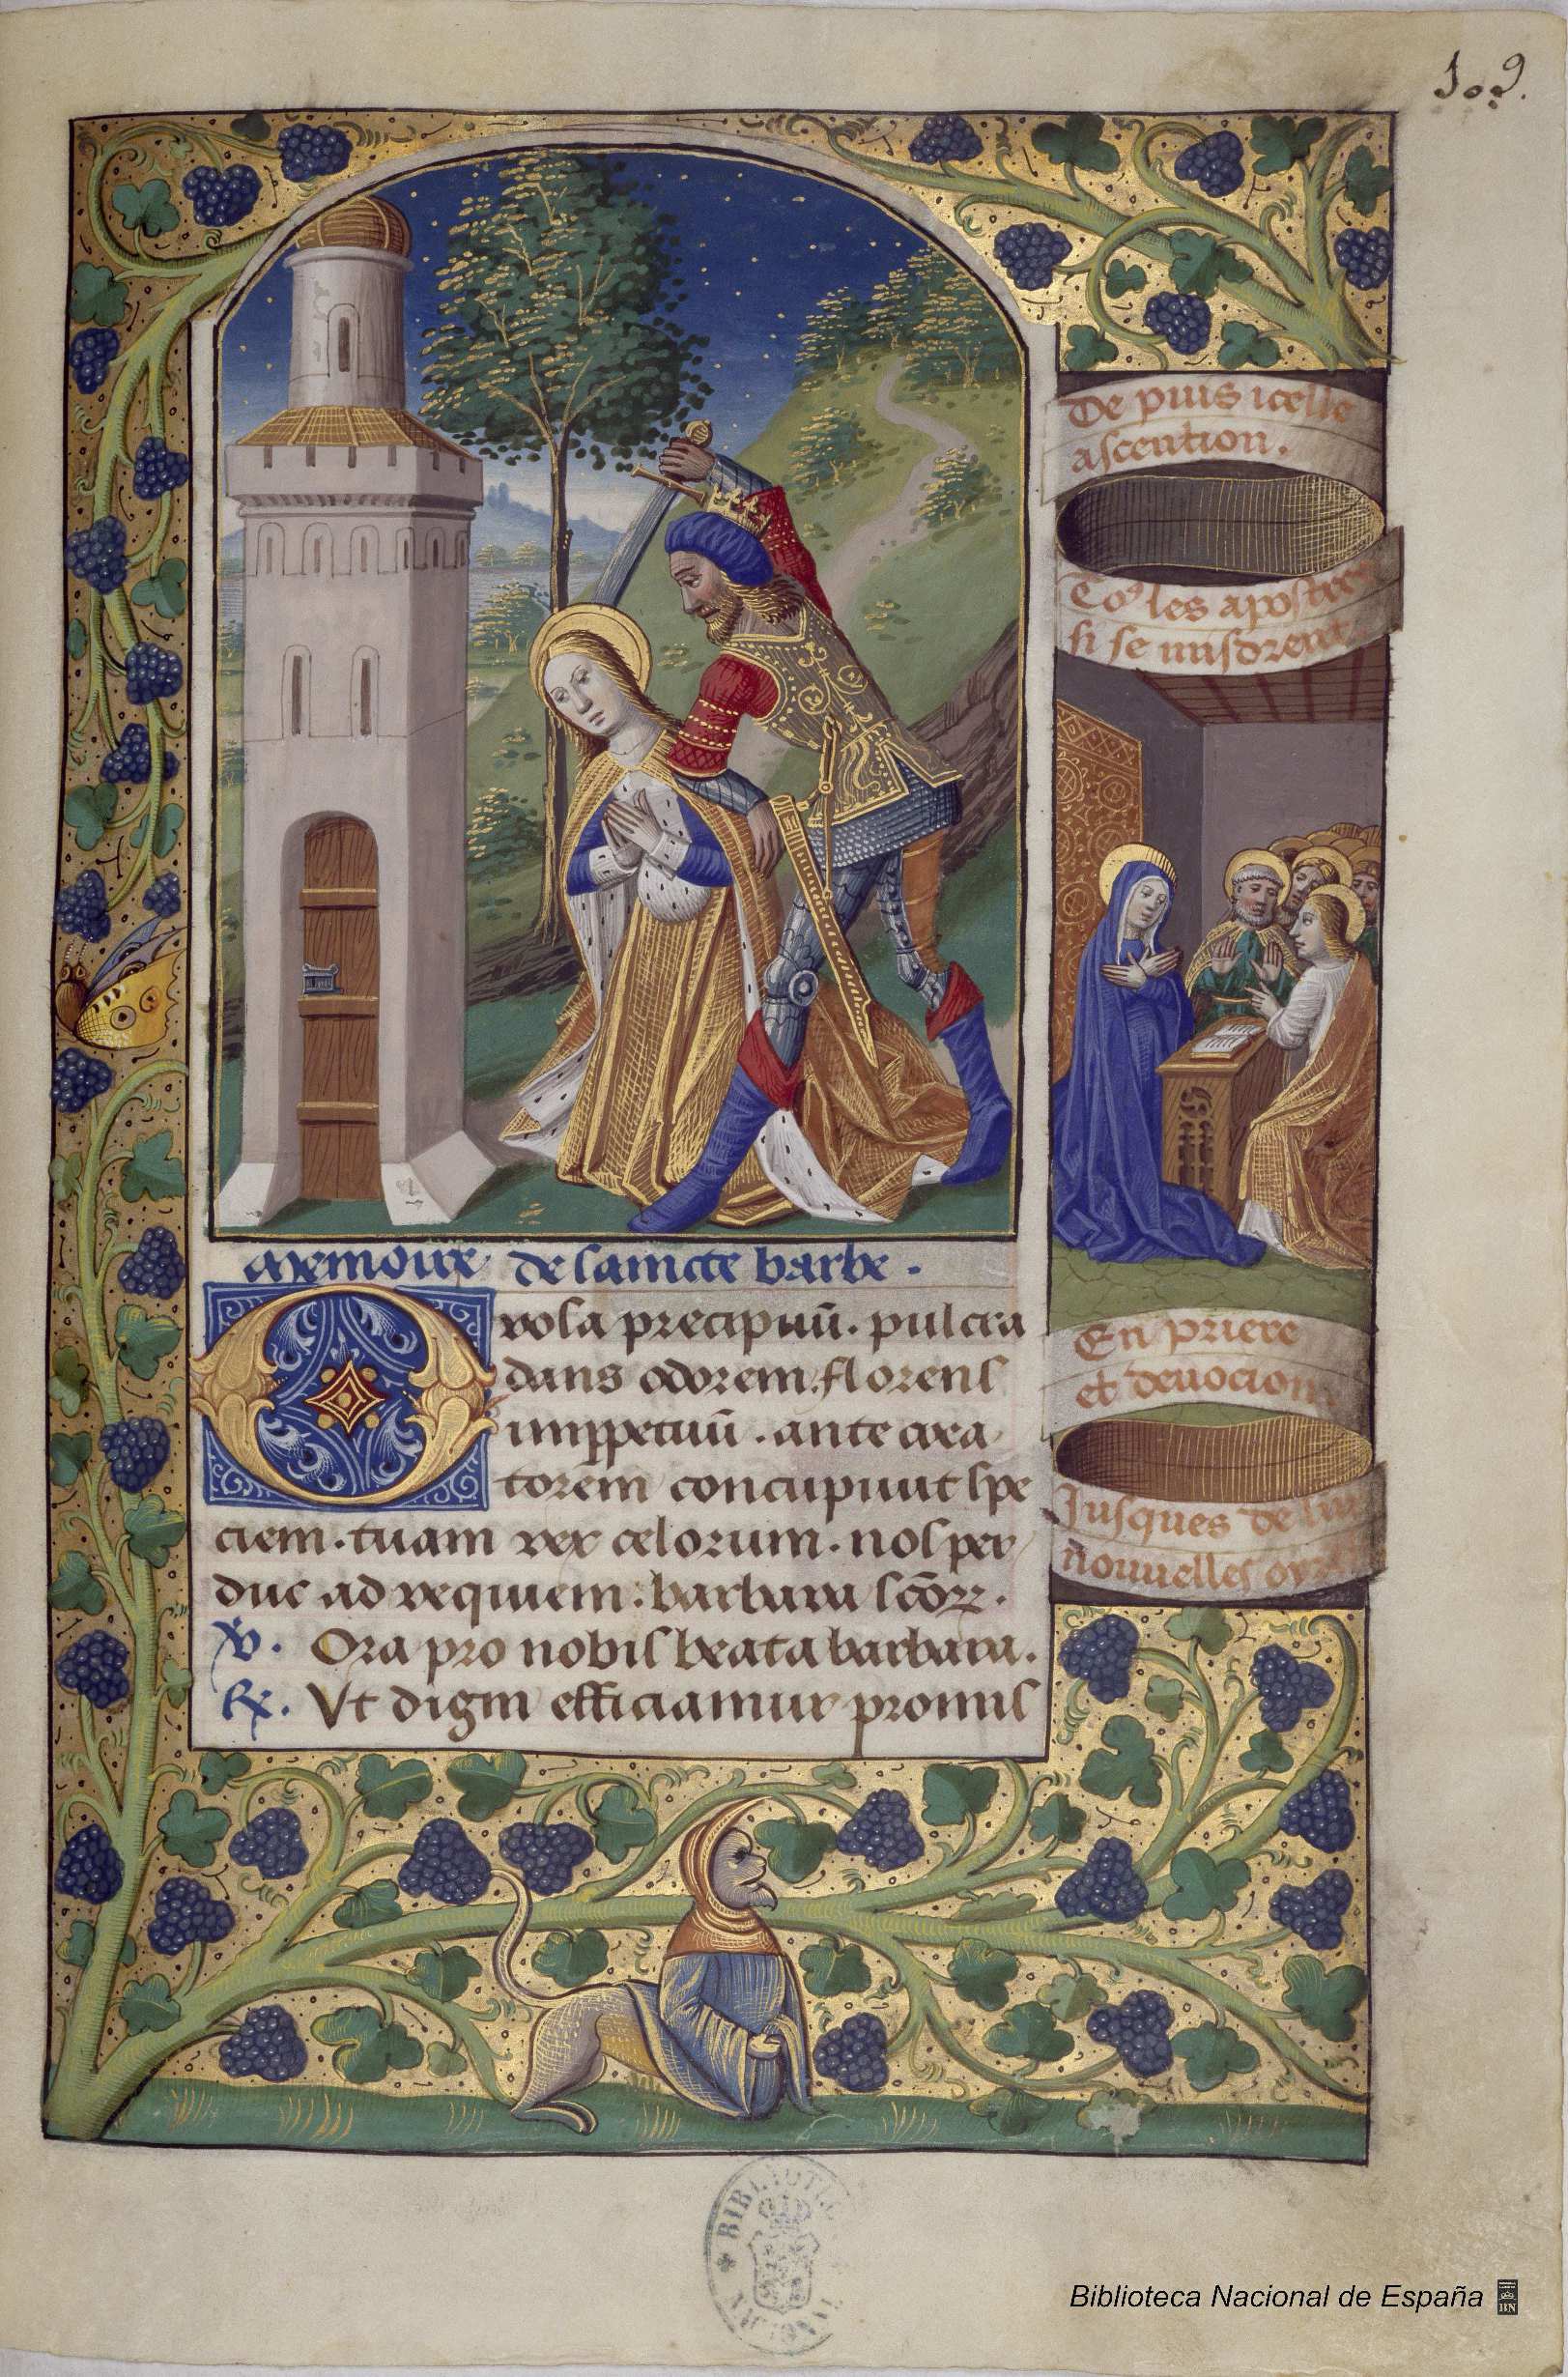 109.
De puis icelle
ascention.
To9 les apostres
si se misdrent
En priere
et deuocion
Jusques de luy
nouuelles
Memoire de saincte barbe.
vola precipuū. pulcra
dans odorem. florens
ante crea
torem concupiuit spe
ciem. tuam rex celorum. nos per
duc ad requiem: barbara scōꝝ.
℣. Ora pro nobis beata barbara.
℟. Vt digni efficiamur promis
BIBLIOTECA NACIONAL
Biblioteca Nacional de España
BN